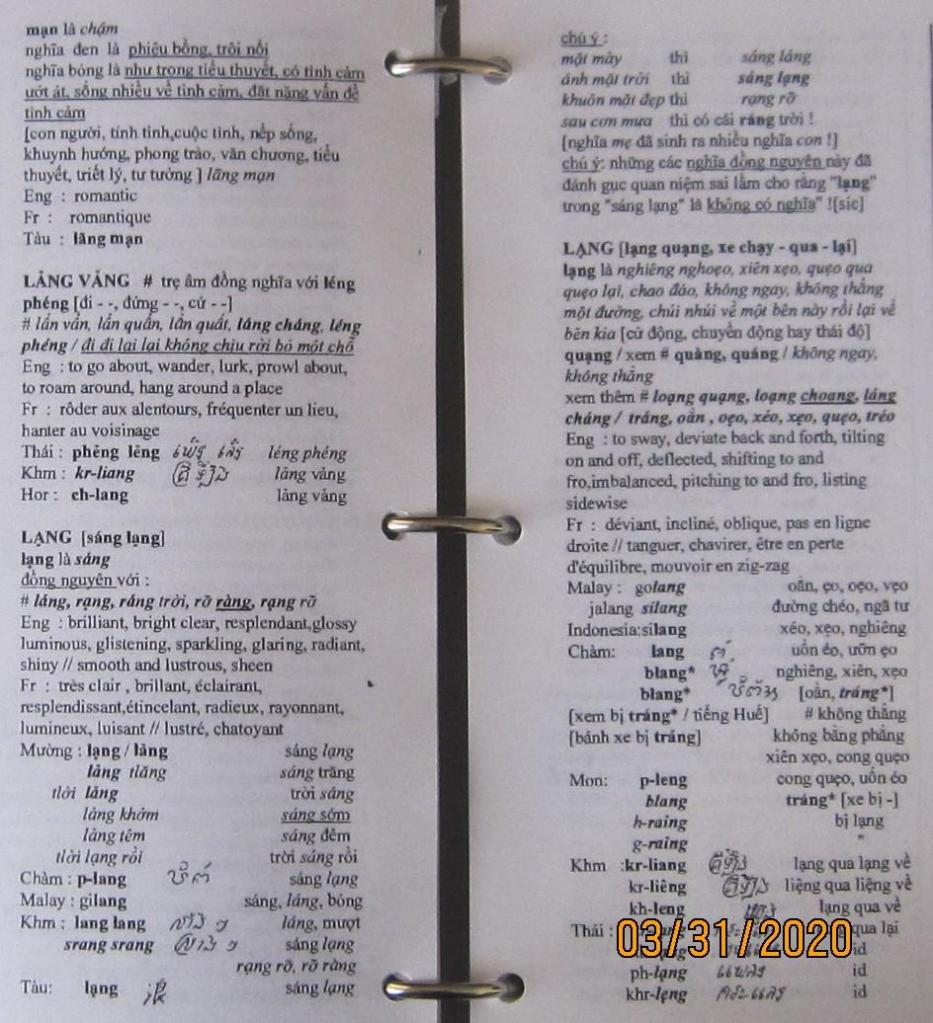 mạn là chậm
nghĩa đen là phiêu bồng, trôi nổi
nghĩa bóng là như trong tiểu thuyết, có tình cảm
ướt át, sống nhiều về tình cảm, đặt nặng vấn đề
tình cảm
[con người, tính tình,cuộc tình, nếp sống,
khuynh hướng, phong trào, văn chương, tiểu
thuyết, triết lý, tư tưởng ] lãng mạn
Eng : romantic
Fr : romantique
Tàu : lãng mạn
LẢNG VẢNG # trẹ âm đồng nghĩa với léng
phéng [đi - -, đứng - -, cứ - -]
# lẩn vẩn, lẩn quẩn, lẩn quất, láng cháng, léng
phéng / đi đi lại lại không chịu rời bỏ một chỗ
Eng : to go about, wander, lurk, prowl about,
to roam around, hang around a place
Fr : rôder aux alentours, fréquenter un lieu,
hanter au voisinage
Thái : phẻng lẻng léng phéng
Khm : kr-liang lảng vảng
Hor : ch-lang lảng vảng
LẠNG [sáng lạng]
lạng là sáng
đồng nguyên với :
# láng, rạng, ráng trời, rỡ ràng, rạng rỡ
Eng : brilliant, bright clear, resplendant,glossy
luminous, glistening, sparkling, glaring, radiant,
shiny // smooth and lustrous, sheen
Fr : très clair , brillant, éclairant,
resplendissant,étincelant, radieux, rayonnant,
lumineux, luisant // lustré, chatoyant
Mường : lạng / lảng sáng lạng
lảng tlăng sáng trăng
tlời lảng trời sáng
lảng khởm sáng sớm
lảng têm sáng đêm
tlời lạng rồi trời sáng rồi
Chàm : p-lang sáng lạng
Malay : gilang sáng, láng, bóng
Khm : lang lang láng, mượt
srang srang sáng lạng
rạng rỡ, rỡ ràng
Tàu: lạng 浪 sáng lạng
chú ý :
mặt mày thì sáng láng
ánh mặt trời thì sáng lạng
khuôn mặt đẹp thì rạng rỡ
sau cơn mưa thì có cái ráng trời !
[nghĩa mẹ đã sinh ra nhiều nghĩa con !]
chú ý: những các nghĩa đồng nguyên này đã
đánh gục quan niệm sai lầm cho rằng "lạng"
trong "sáng lạng" là không có nghĩa" ![sic]
LẠNG [lạng quạng, xe chạy - qua - lại]
lạng là nghiêng nghoẹo, xiên xẹo, quẹo qua
quẹo lại, chao đảo, không ngay, không thẳng
một đường, chúi nhủi về một bên này rồi lại về
bên kia [cử động, chuyển động hay thái độ]
quạng / xem # quàng, quáng / không ngay,
không thẳng
xem thêm # loạng quạng, loạng choạng, láng
cháng / tráng, oằn , oẹo, xéo, xẹo, quẹo, tréo
Eng : to sway, deviate back and forth, tilting
on and off, deflected, shifting to and
fro,imbalanced, pitching to and fro, listing
sidewise
Fr : déviant, incliné, oblique, pas en ligne
droite // tanguer, chavirer, être en perte
d'équilibre, mouvoir en zig-zag
Malay : golang oằn, ẹo, oẹo, vẹo
jalang silang đường chéo, ngã tư
Indonesia:silang xéo, xẹo, nghiêng
Chàm: lang uốn éo, ưỡn ẹo
blang* nghiêng, xiên, xẹo
blang* [oằn, tráng*]
[xem bị tráng* / tiếng Huế] # không thẳng
[bánh xe bị tráng] không bằng phẳng
xiên xẹo, cong quẹo
Mon: p-leng cong quẹo, uốn éo
blang tráng* [xe bị -]
h-raing bị lạng
g-raing "
Khm :kr-liang lạng qua lạng về
kr-liêng liệng qua liệng về
kh-leng lạng qua về
Thái : qua lại
id
ph-lạng id
khr-lẹng id
03/31/2020